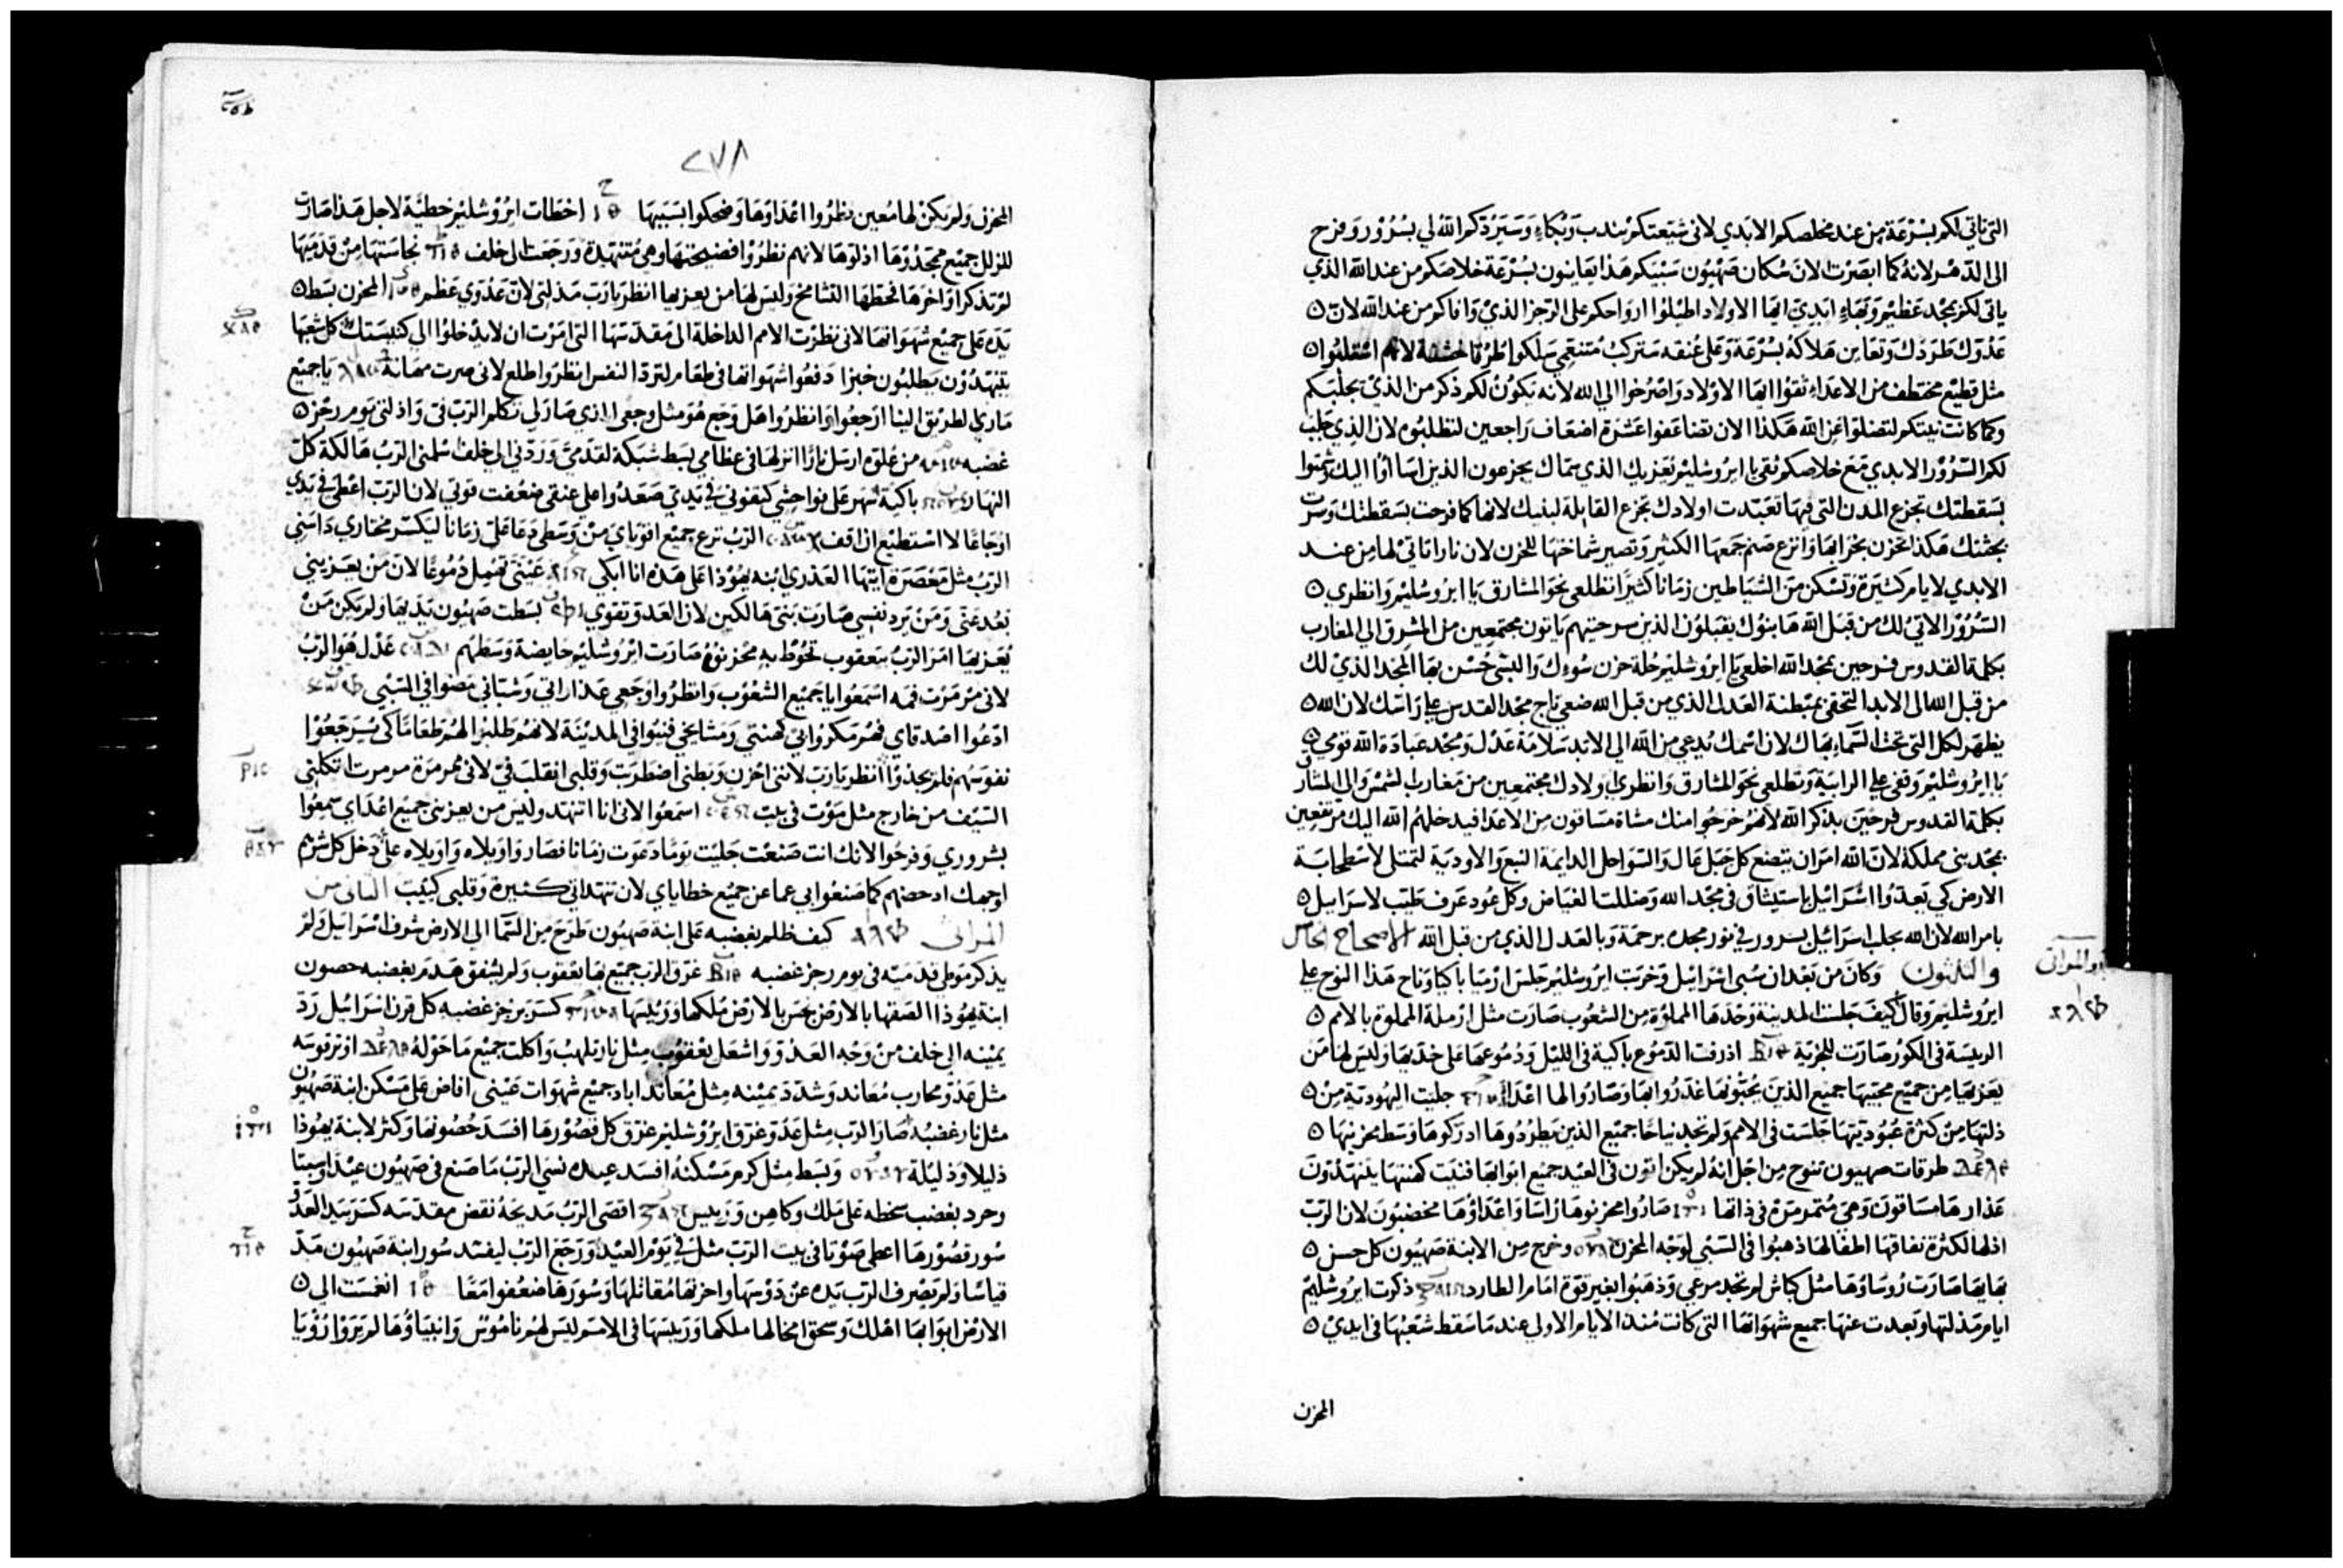 التي تاتي لكم بسرعة من عند مخلصكم الابدي لاني شيعتكم بندب وبكاء وسيردكم الله لي بسرور وفرح
الى الدهر لانه كما ابصرت الان سكان صهيون سبيكم هذا يعاينون بسرعة خلاصكم من عند الله الذي
ياتي لكم بمجد عظيم وبهاء ابدي ايها الاولاد اطيلوا ارواحكم على الرجز الذي وافاكم من عند الله لان
عدوك طردك وتعاين هلاكه بسرعة وعلى عنقه ستركب متنعمي سلكوا طرقا خشنة لانهم استلبوا
مثل قطيع مختطف من الاعداء ثقوا ايها الاولاد واصرخوا الي الله لانه يكون لكم ذكر من الذي يجلبكم
وكما كانت نيتكم لتضلوا عن الله هكذا الان تضاعفوا عشرة اضعاف راجعين لتطلبوه لان الذي جلب
لكم السرور الابدي مع خلاصكم ثقي يا ايروشليم يعزيك الذي سماك يجزعون الذين اساؤا اليك وشمتوا
بسقطتك تجزع المدن التي فيها تعبدت اولادك تجزع القابلة لبنيك لانها كما فرحت بسقطتك وسرت
بجثتك هكذا تحزن بخرابها وانزع صنم جمعها الكثير وتصير شماختها للحزن لان نارا تاتي لها من عند
الابدي لايام كثيرة وتسكن من الشياطين زمانا كثيرا تطلعي نحو المشارق يا ايروشليم وانظري
السرور الاتي لك من قبل الله ها بنوك يقبلون الذين سرحتيهم ياتون مجتمعين من المشرق الي المغارب
بكلمة القدوس فرحين بمجد الله اخلعي يا ايروشليم حلة حزن سوءك والبسي حسن بها المجد الذي لك
من قبل الله الى الابد التحفي بمبطنة العدل الذي من قبل الله ضعي تاج مجد القدس علي راسك لان الله
يظهر لكل التي تحت السماء بهاك لان اسمك يدعي من الله الي الابد سلامة عدل ومجد عبادة الله قومي
يا ايروشليم وقفي علي الرابية وتطلعي نحو المشارق وانظري اولادك مجتمعين من مغارب الشمس والي المشارق
بكلمة القدوس فرحين بذكر الله لانهم خرجوا منك مشاة مساقون من الاعدا فيدخلهم الله اليك مرتفعين
بمجد بني مملكة لان الله امر ان يتضع كل جبل عال والسواحل الدايمة النبع والاودية لتمتلي لاسطحابة
الارض كي يعدوا اسرائيل باستيثاق في مجد الله وضللت الغياض وكل عود عرف طيب لاسرائيل
بامر الله لان الله يجلب اسرائيل بسرور في نور مجده برحمة وبالعدل الذي من قبل الله الاصحاح الخامس
والثلثون وكان من بعد ان سبي اسرائيل وخربت ايروشليم جلس ارميا باكيا وناح هذا النوح علي
ايروشليم وقال كيف جلست المدينة وحدها المملؤة من الشعوب صارت مثل ارملة المملؤة بالامم
الرييسة في الكور صارت للجزية اذرفت الدموع باكية في الليل ودموعها على خديها وليس لها من
يعزيها من جميع محبيها جميع الذين يحبونها غدروا بها وصاروا لها اعدا جليت اليهودية من
ذلتها من كثرة عبوديتها جلست في الامم ولم تجد نياحا جميع الذين يطردوها ادركوها وسط محزنيها
طرقات صهيون تنوح من اجل انه لم يكن اتون في العيد جميع ابوابها فنيت كهنتها يتنهدون
عذارها مساقون وهي متمرمرة في ذاتها صاروا محزنوها راسا واعداؤها مخصبون لان الرب
اذلها لكثرة نفاقها اطفالها ذهبوا في السبي لوجه المحزن وخرج من الابنة صهيون كل حسن
بهايها صارت روساوها مثل كباش لم تجد مرعي وذهبوا بغير قوة امام الطارد ذكرت ايروشليم
ايام مذلتها وبعدت عنها جميع شهواتها التي كانت منذ الايام الاولي عند ما سقط شعبها في ايدي
المحزن
٢٧٨
المحزن ولم يكن لها معين نظروا اعداوها وضحكوا بسببها اخطات ايروشليم خطية لاجل هذا صارت
للزلل جميع ممجدوها اذلوها لانهم نظروا فضيحتها وهي متنهدة ورجعت الى خلف نجاستها من قدميها
لم تذكر اواخرها فحطها التشامخ وليس لها من يعزيها انظر يا رب مذلتي لان عدوي عظم المحزن بسط
يده على جميع شهواتها لاني نظرت الامم الداخلة الى مقدسها التي امرت ان لا يدخلوا الي كنيستك كل شعبها
يتنهدون يطلبون خبزا دفعوا شهواتها في طعام لترد النفس انظر واطلع لاني صرت مهانة يا جميع
ماري الطريق الينا ارجعوا وانظروا هل وجع هو مثل وجعي الذي صار لي تكلم الرب فيّ واذلني يوم رجز
غضبه من علوه ارسل نارا انزلها في عظامي بسط شبكة لقدمي وردني الى خلف سلمني الرب هالكة كل
النهار باكية سهر على نواحشي كتفوني في يدي صعدوا علي عنقي ضعفت قوتي لان الرب اعطى في يدي
اوجاعا لا استطيع ان اقف الرب نزع جميع اقوياي من وسطي دعا علي زمانا ليكسر مختاري داسني
الرب مثل معصرة ايتها العذري ابنه يهوذا على هذه انا ابكي عيني تهمل دموعا لان من يعزيني
بعد عني ومن يرد نفسي صارت بني هالكين لان العدو تقوي بسطت صهيون يديها ولم يكن من
يعزيها امر الرب بيعقوب تحوط به محزنوه صارت ايروشليم حايضة وسطهم عدل هو الرب
لاني مرمرت فمه اسمعوا يا جميع الشعوب وانظروا وجعي عذاراتي وشباني مضوا في السبي
ادعوا اصدقاي فهم مكروا بي كهنتي ومشايخي فنيوا في المدينة لانهم طلبوا لهم طعاما كي يسترجعوا
نفوسهم فلم يجدوا انظر يا رب لانني احزن وبطني اضطربت وقلبي انقلب فيّ لاني ممرمرة مرمرت اتكلني
السيف من خارج مثل موت في بيت اسمعوا لاني انا اتنهد وليس من يعزيني جميع اعداي سمعوا
بشروري وفرحوا لانك انت صنعت جلبت يوما دعوت زمانا فصار واويلاه واويلاه على دخل كل شرهم
اوجهك ادحضهم كما صنعوا بي عما عن جميع خطاياي لان تنهداتي كثيرة وقلبي كئيب الثاني من
المراثي كيف ظلم بغضبه على ابنة صهيون طرح من السما الي الارض شرف اسرائيل ولم
يذكر موطي قدميه في يوم رجز غضبه غرق الرب جميع بها يعقوب ولم يشفق هدم بغضبه حصون
ابنة يهوذا الصقها بالارض نجس بالارض ملكها ورييسها كسر برجز غضبه كل قرن اسرائيل رد
يمينه الى خلف من وجه العدو واشعل يعقوب مثل نار تلهب واكلت جميع ما حوله اوتر قوسه
مثل عدو محارب معاند وشدد يمينه مثل معاند اباد جميع شهوات عيني افاض على مسكن ابنة صهيون
مثل نار غضبه صار الرب مثل عدو غرق ايروشليم غرق كل قصورها افسد حصونها وكثر لابنة يهوذا
ذليلا وذليلة وبسط مثل كرم مسكنه افسد عيده نسي الرب ما صنع في صهيون عيدا وسبتا
وحرد بغضب سخطه على ملك وكاهن ورييس اقصى الرب مذبحه نقض مقدسه كسر بيد العدو
سور قصورها اعطى صوتا في بيت الرب مثل في يوم العيد ورجع الرب ليفسد سور ابنة صهيون مد
قياسا ولم يصرف الرب يده عن دوسها واحزنها مقاتلها وسورها ضعفوا معا انغمست الي
الارض ابوابها اهلك وسحق امخالها ملكها ورييسها في الامم ليس لهم ناموس وانبياؤها لم يروا رؤيا